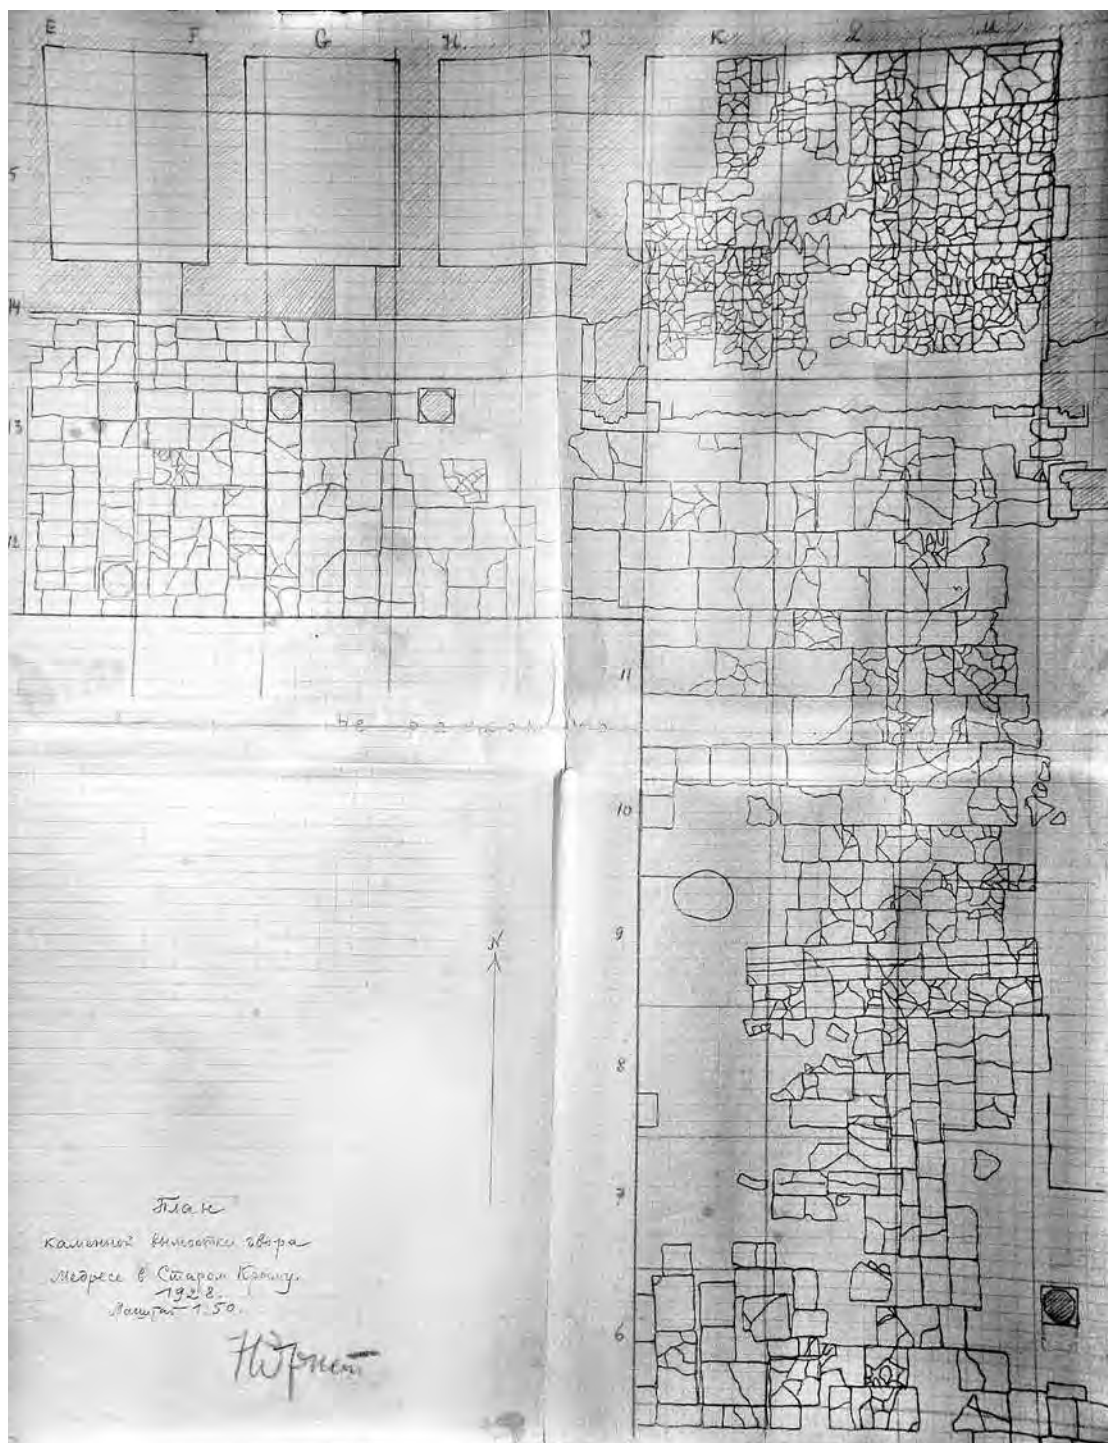 E F G H. J K L M
5
14
13
12
11
не раскопано
10
9
N
8
7
План
каменной вымостки двора
Медресе в Старом Крыму.
1928.
Масштаб 1:50.
6